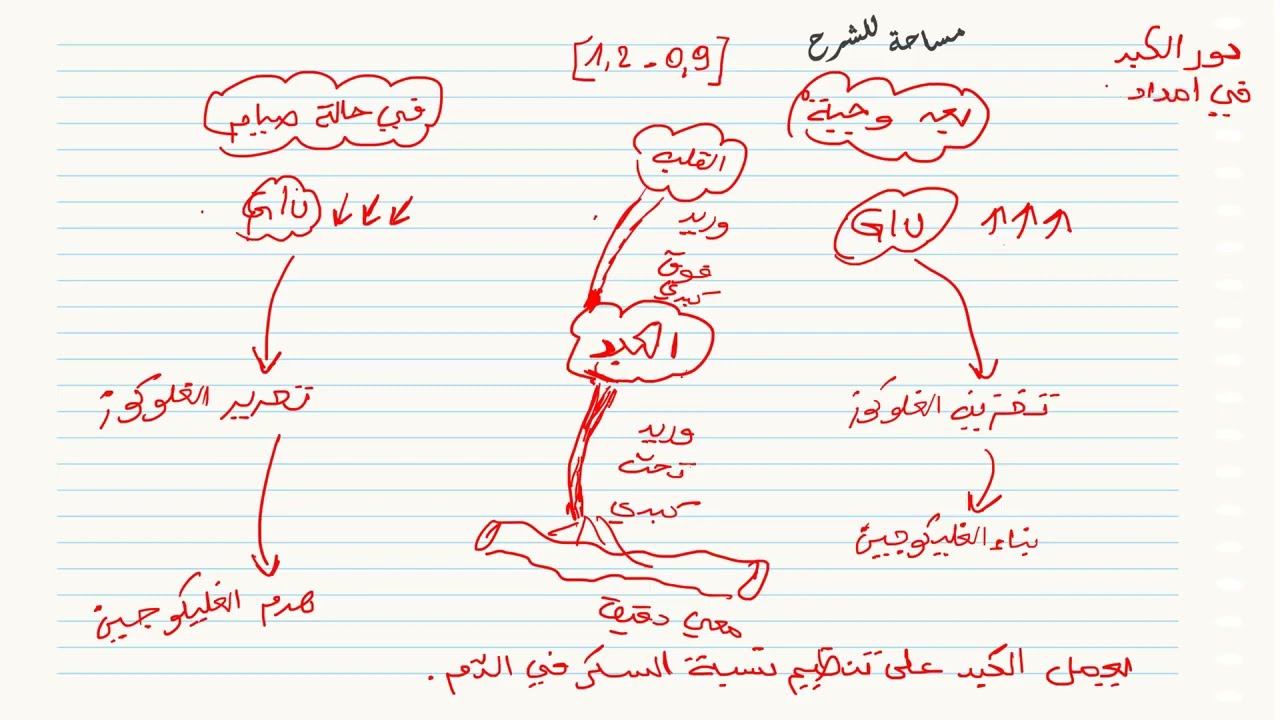 مساحة للشرح
دور الكبد
في امداد
[0,9 - 1,2]
بعد وجبة
Glu
تخزين الغلوكوز
بناء الغليكوجين
القلب
وريد
فوق
كبدي
الكبد
وريد
تحت
كبدي
معي دقيق
في حالة صيام
Glu
تحرير الغلوكوز
هدم الغليكوجين
يعمل الكبد على تنظيم نسبة السكر في الدّم .